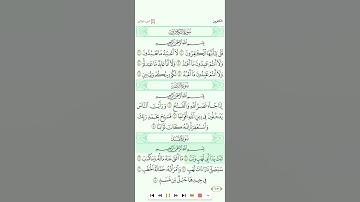 الكافرون
سورة الكافرون
بسم الله الرحمن الرحيم
قل يأيها الكفرون لا أعبد ما تعبدون
ولا أنتم عبدون ما أعبد ولا أنا عابد ما عبدتم
ولا أنتم عبدون ما أعبد لكم دينكم ولي دين
سورة النصر
بسم الله الرحمن الرحيم
إذا جاء نصر الله والفتح ورأيت الناس
يدخلون في دين الله أفواجا فسبح بحمد ربك
واستغفره إنه كان توابا
سورة المسد
بسم الله الرحمن الرحيم
تبت يدا أبي لهب وتب ما أغنى عنه ماله وما كسب
سيصلى نارا ذات لهب وامرأته حمالة الحطب
في جيدها حبل من مسد